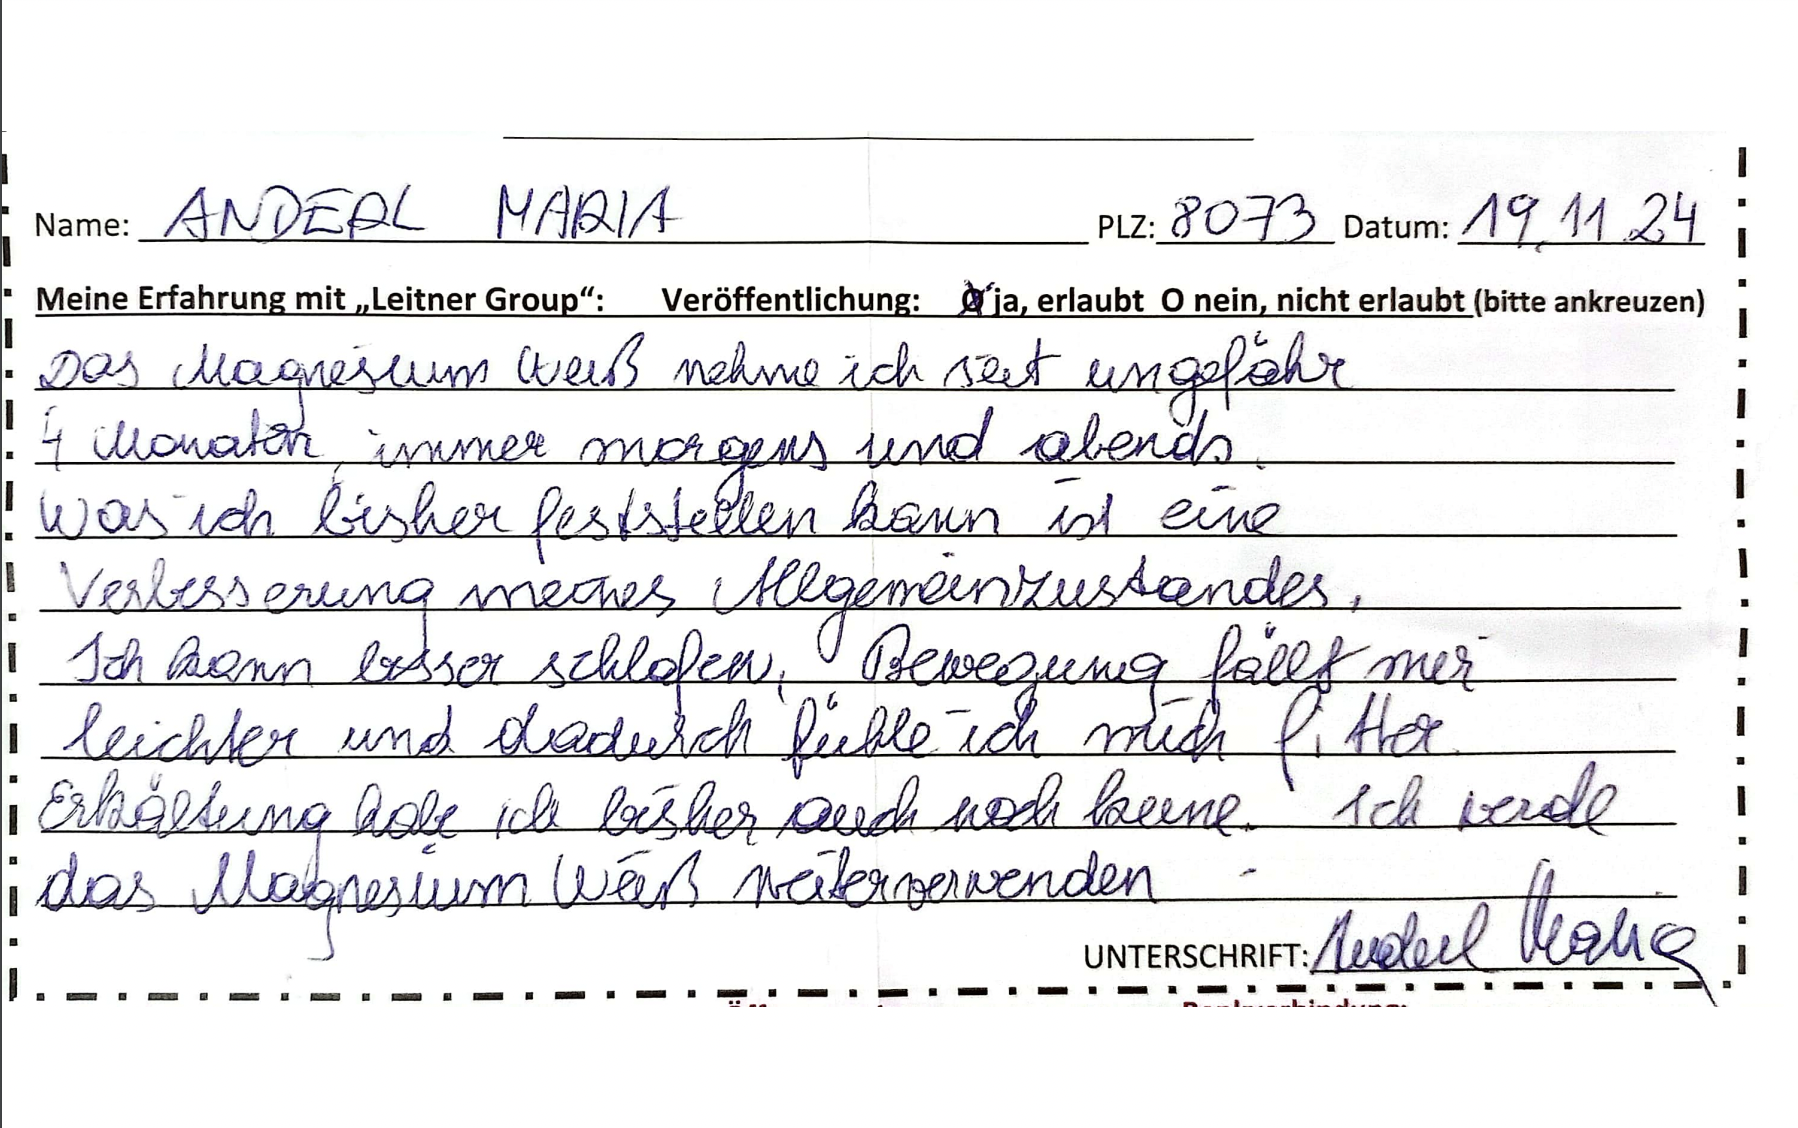 Name: ANDERL MARIA PLZ: 8073 Datum: 19.11.24
Meine Erfahrung mit „Leitner Group“: Veröffentlichung: O ja, erlaubt O nein, nicht erlaubt (bitte ankreuzen)
Das Magnesium Weiß nehme ich seit ungefähr
4 Monaten, immer morgens und abends.
Was ich bisher feststellen kann ist eine
Verbesserung meines Allgemeinzustandes.
Ich kann besser schlafen, Bewegung fällt mir
leichter und dadurch fühle ich mich fitter.
Erkältung habe ich bisher auch noch keine. Ich werde
das Magnesium Weiß weiterverwenden
UNTERSCHRIFT: Anderl Maria